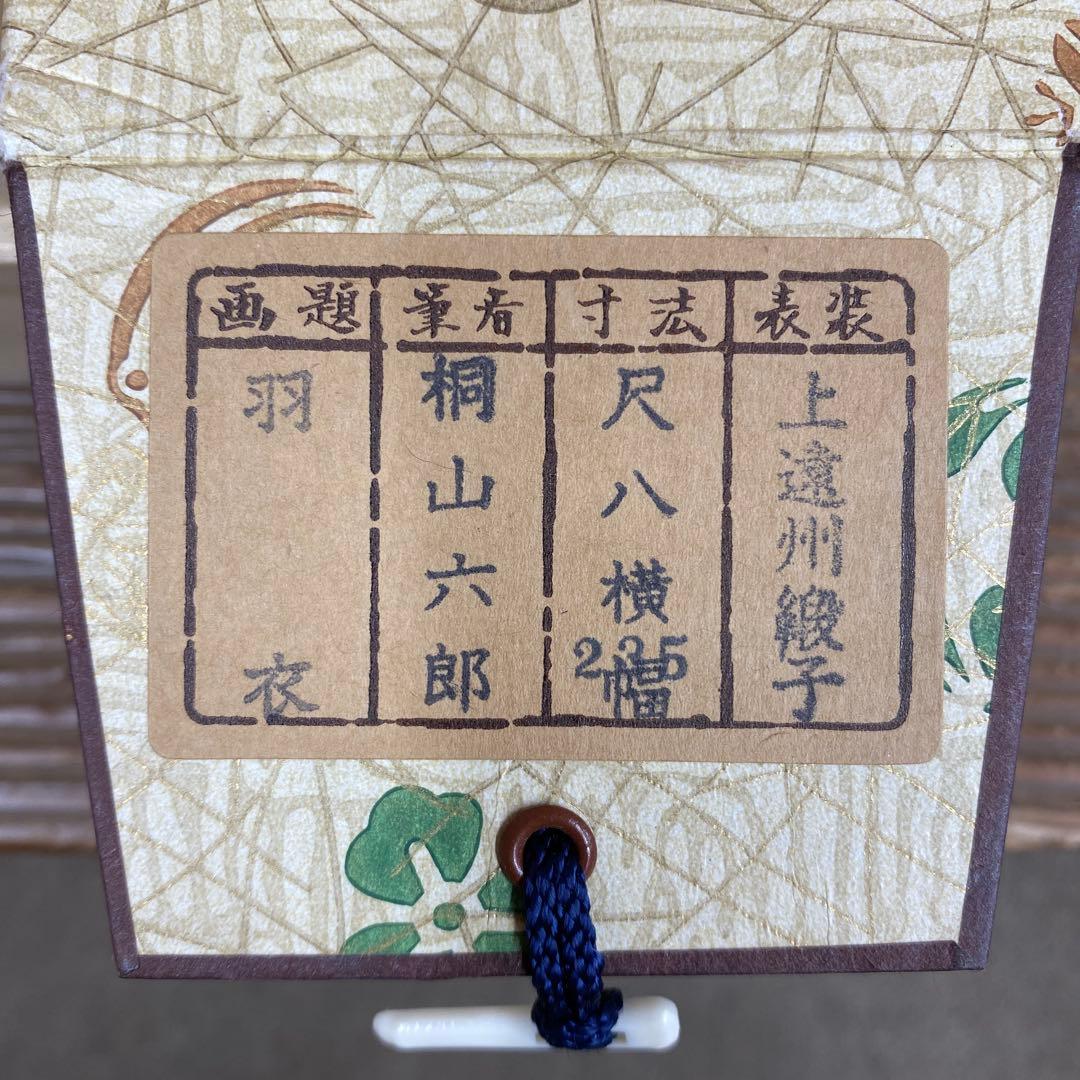 画題
羽衣
筆者
桐山六郎
寸法
尺八横幅
235
表装
上遠州緞子